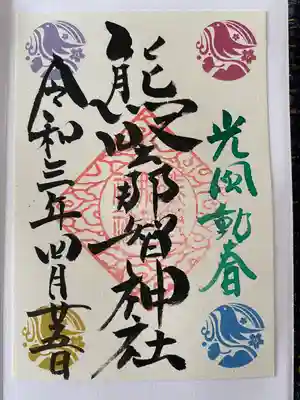 光風動春
熊野那智神社
令和三年四月廿五日